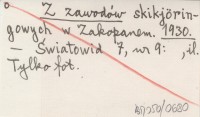 o
Z zawodów skikjörin-
gowych w Zakopanem. 1930.
— Światowid 7, nr 9: , il.
Tylko fot.